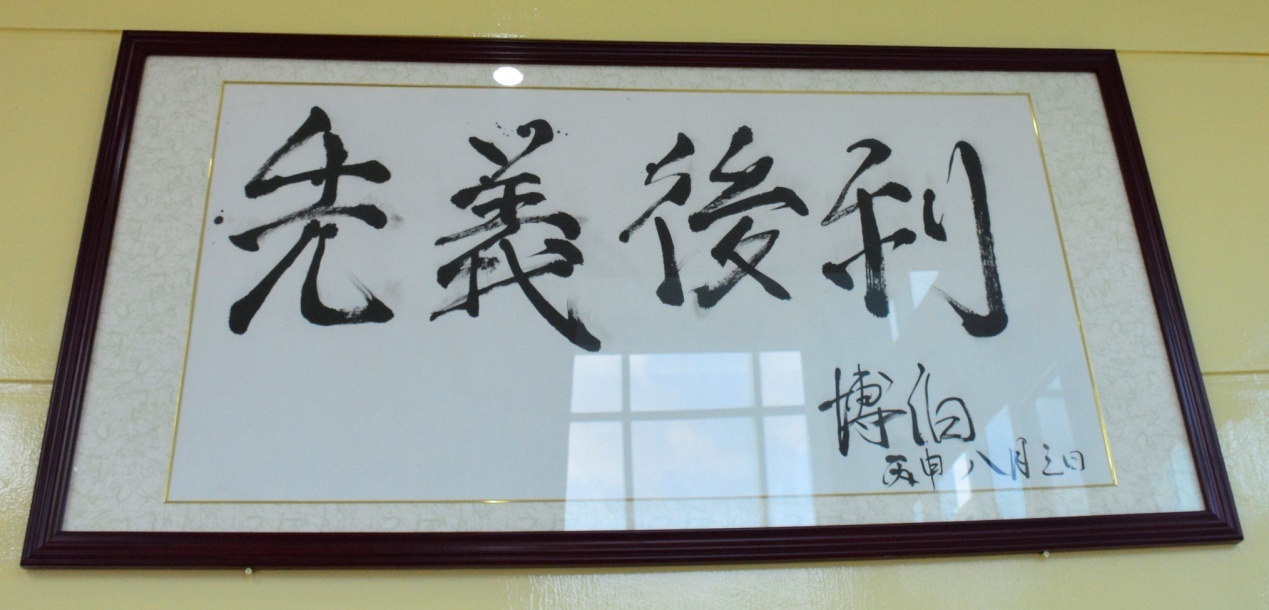 先義後利
博伯
丙申八月三日